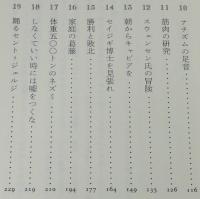 10 ナチズムの足音 116
11 筋肉の研究 126
12 スウェンセン氏の冒険 135
13 朝からキャビアを 149
14 セイジギ博士を見張れ 164
15 勝利と敗北 177
16 家庭の葛藤 194
17 体重五〇〇トンのネズミ 210
18 しなくていい時には嘘をつくな 219
19 踊るセント・ジェルジ 229